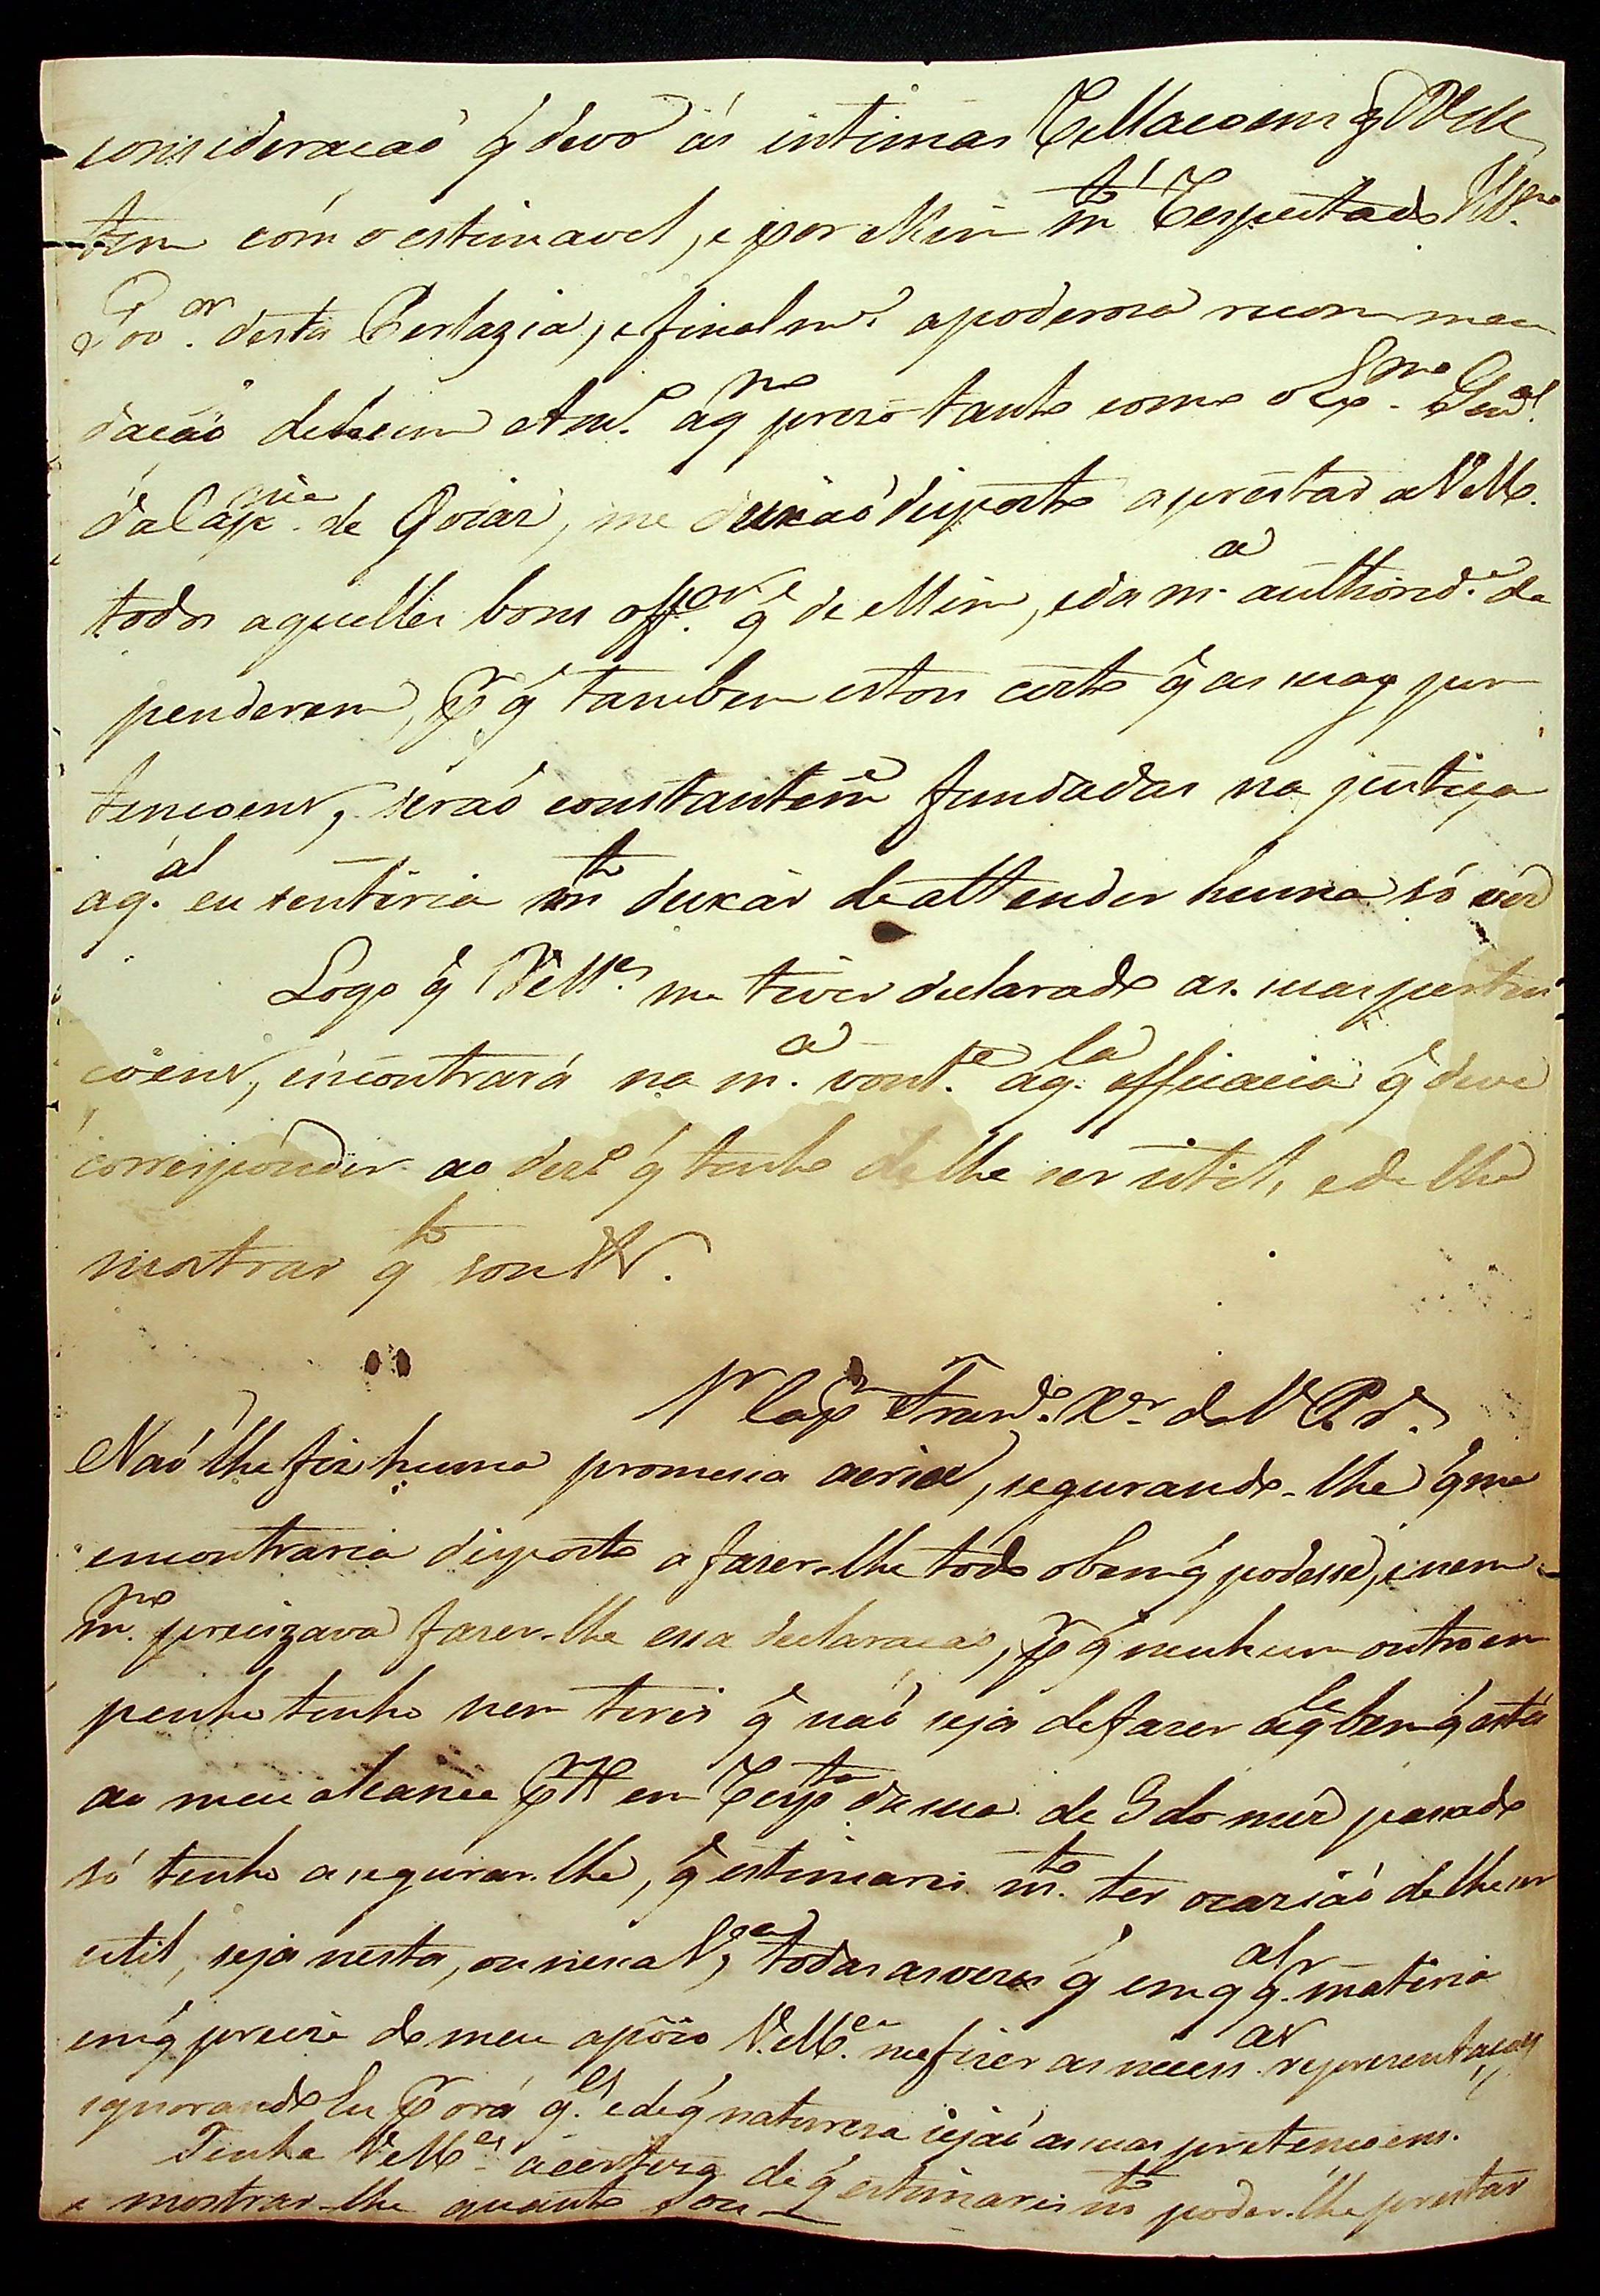 consideracaõ q̃ devo ás intimas Rellacoens q̃ VM.ce
tem com o estimavel, e por Mim m.to Respectado Ill.mo
Gov.or desta Cerlazia, e finalm.e a poderosa recommen
dacaõ de hum Am.o aq.m prezo tanto como o Ex.mo Gen.al
da Cap.nia de Goiaz, me deixaõ disposto a prestar a VM.ce
todos aquelles bons off.os q̃ de Mim, e da m.a authorid.e de
penderem, p.r q̃ tambem estou certo q̃ as suas per
tencoens, seraõ constantem.e fundadas na justiça
aq.al eu sentiria m.to deixar de attender huma só vez
Logo q̃ VM.ce me tiver declarado as suas perten
coens, encontrará na m.a vont.e aq.la efficacia q̃ deve
corresponder ao dez.o q̃ tenho de lhe ser util, e de lhe
mostrar q.to sou &.
S.r Cap.m Fran.co X.er da V.
Naõ lhe fiz huma promessa aeria, segurando-lhe q̃ me
encontraria disposto a fazer-lhe todo o bem q̃ podesse, e nem
m.mo precizava fazer-lhe essa declaracaõ, p.r q̃ nenhum outro em
penho tenho nem terei q̃ naõ seja de fazer aq.le bem q̃ está
ao meu alcance p.r tt.o em Resp.ta da sua de 3 do mez passado
só tenho a segurar-lhe, q̃ estimarei m.to ter ocaziaõ de lhe ser
util, seja nesta, ou nessa V.a, todas as vezes q̃ em q.q.al materia
em q̃ precize do meu apoio VM.ce me fizer as necess.as representaçoẽs
ignorando Eu p.r ora q.es e de q̃ natureza sejaõ as suas pretencoens.
Tenha VM.ce a certeza de q̃ estimarei m.to poder-lhe prestar
e mostrar-lhe quanto Sou